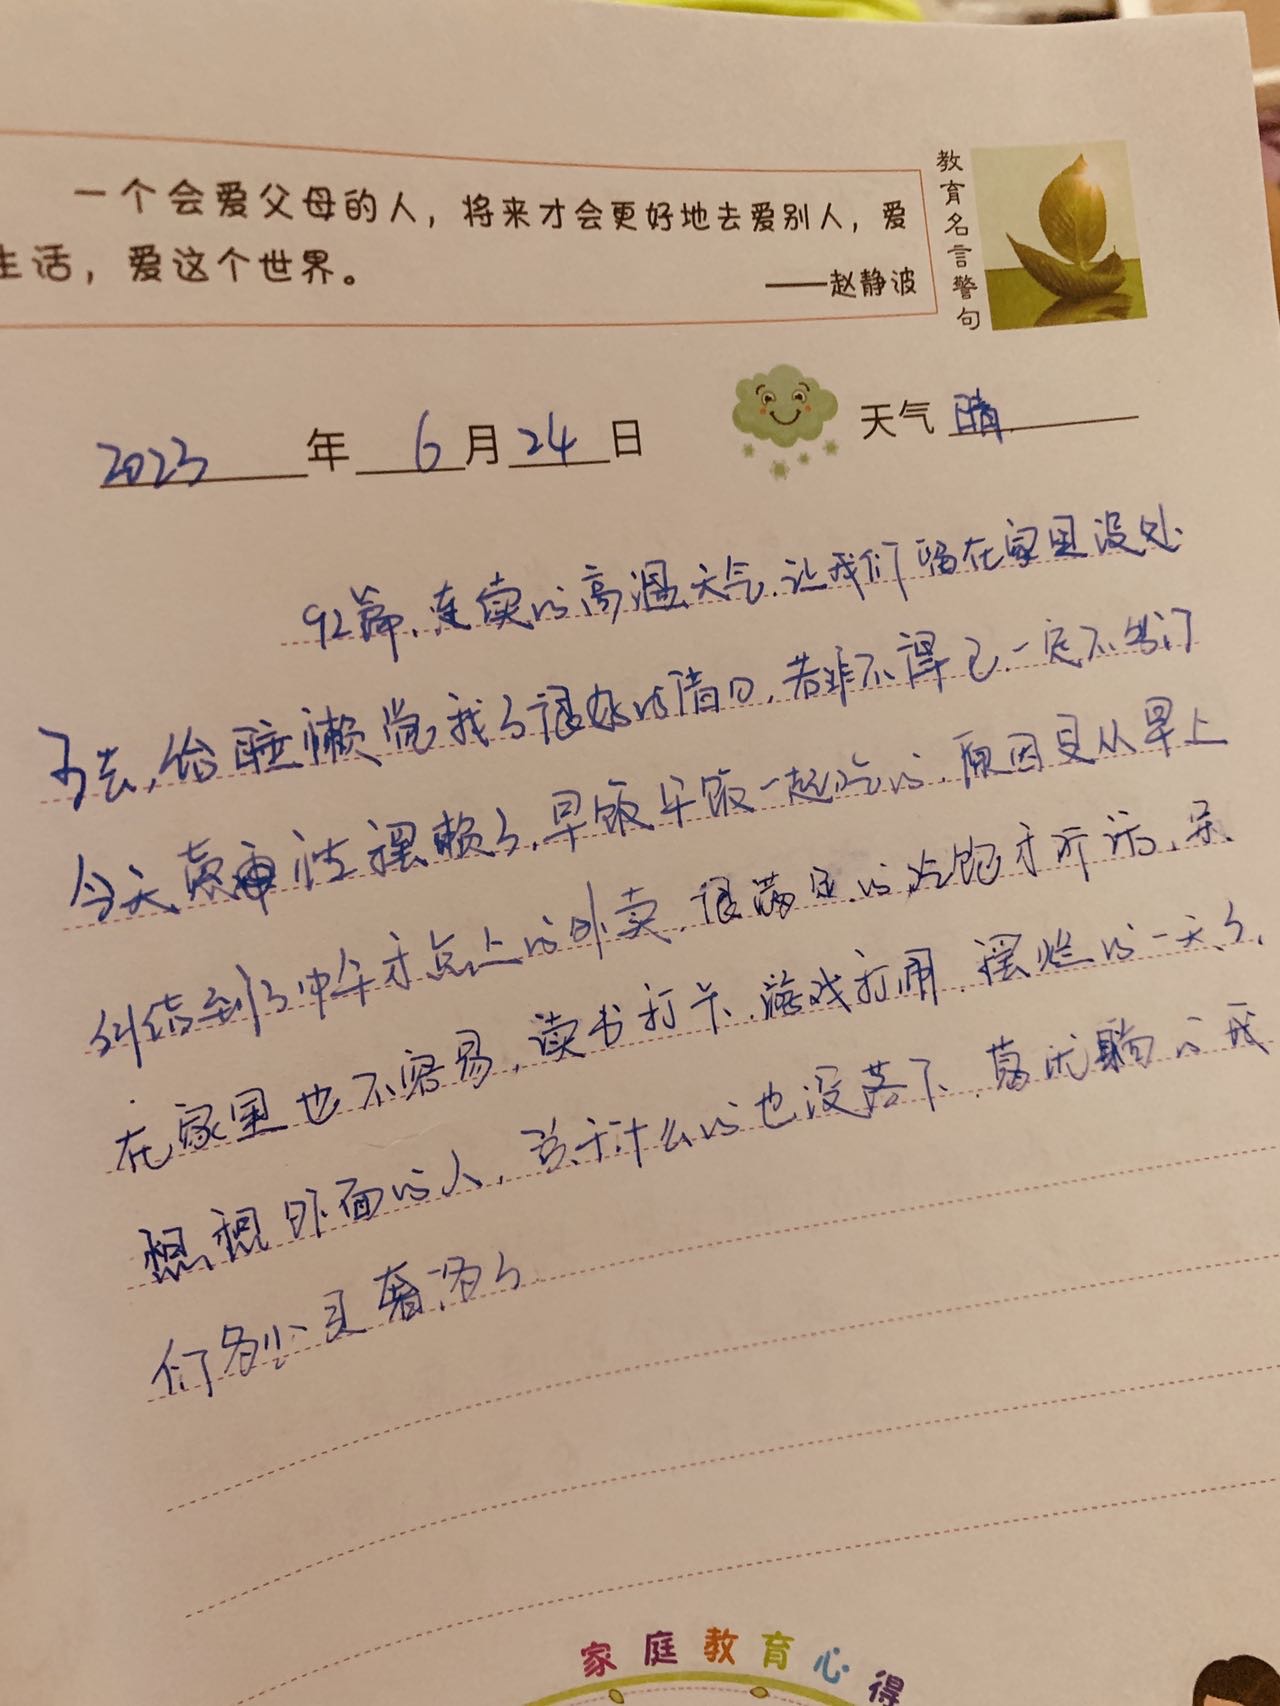 一个会爱父母的人，将来才会更好地去爱别人，爱
生活，爱这个世界。
——赵静波
教育名言警句
2023年6月24日
天气 晴
92篇，连续的高温天气，让我们窝在家里没处
可去，给睡懒觉找了很好的借口，若非不得已一定不出门
今天索性摆赖了，早饭午饭一起吃的，原因是从早上
纠结到了中午才点上的外卖，很满足的吃饱才所谓，呆
在家里也不容易，读书打卡，游戏打闹，摆烂的一天了，
想想外面的人，该干什么的也没落下，葛优躺的我
们多少是奢侈了
家庭教育心得